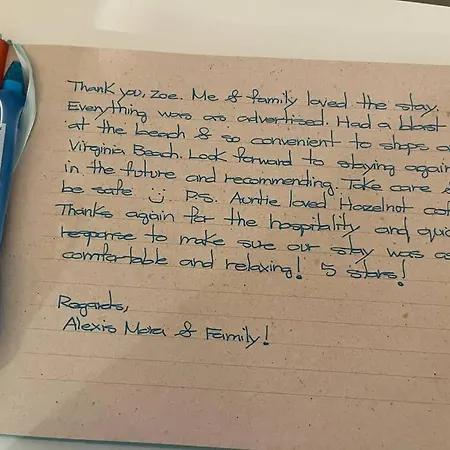 Thank you, Zoe. Me & family loved the stay.
Everything was as advertised. Had a blast
at the beach & so convenient to shops
Virginia Beach. Look forward to staying again
in the future and recommending. Take care &
be safe :) P.S. Auntie loved Hazelnot
Thanks again for the hospitality and
response to make sure our stay was as
comfortable and relaxing! 5 stars!
Regards,
Alexis Mora & Family!